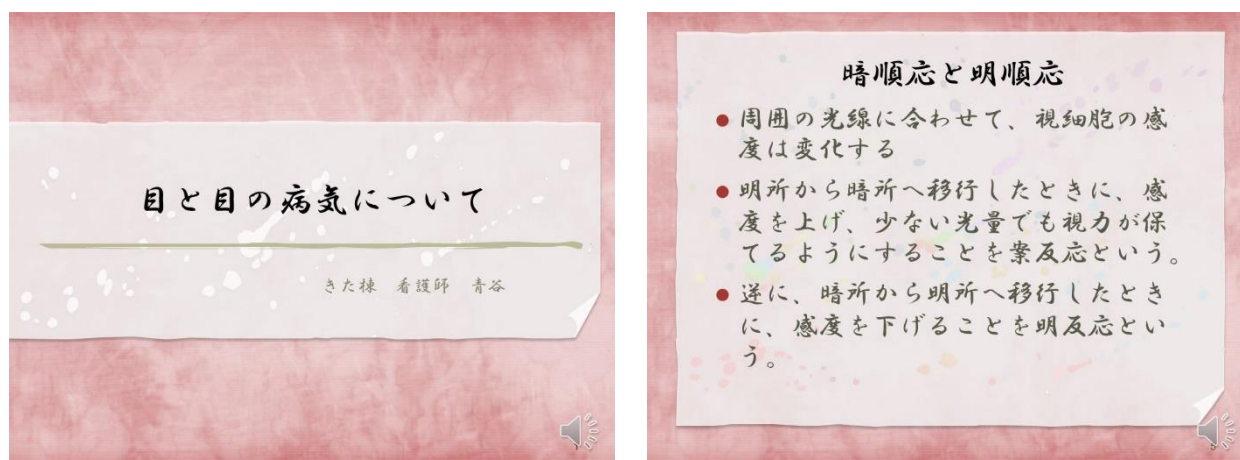 目と目の病気について
きた棟 看護師 青谷
暗順応と明順応
● 周囲の光線に合わせて、視細胞の感
度は変化する
● 明所から暗所へ移行したときに、感
度を上げ、少ない光量でも視力が保
てるようにすることを案反応という。
● 逆に、暗所から明所へ移行したとき
に、感度を下げることを明反応とい
う。